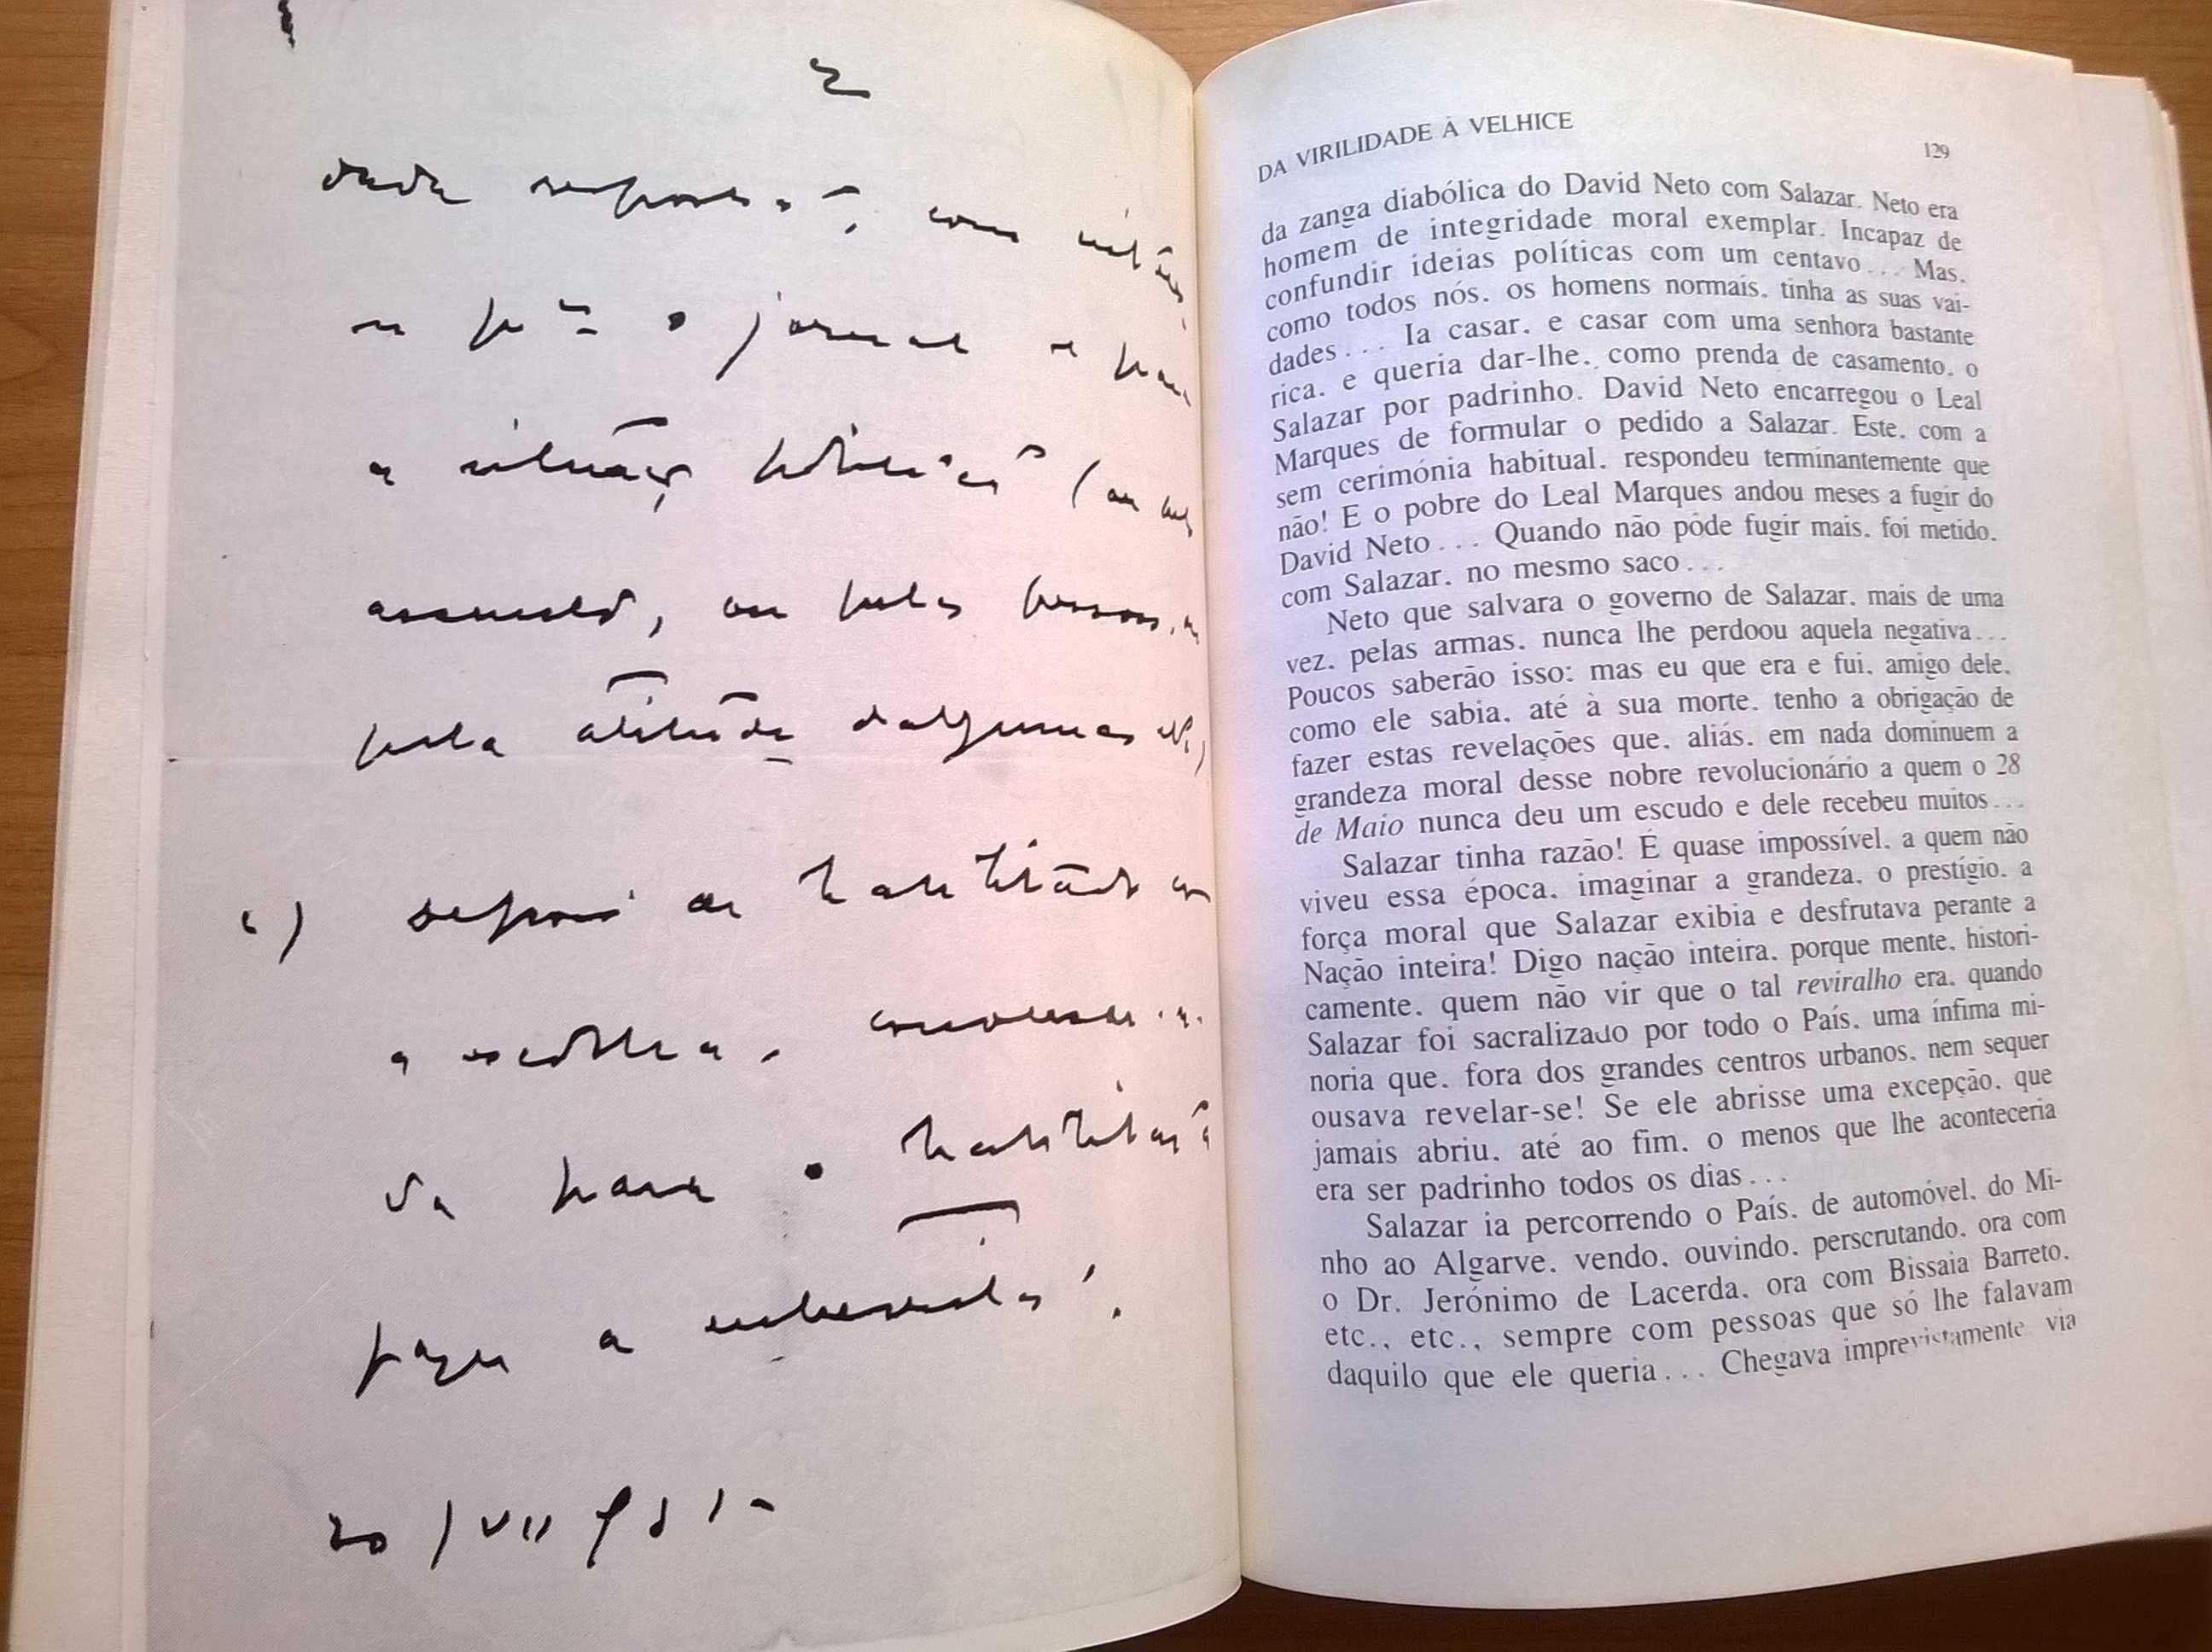 2
dada resposta,
o jornal
a
assunto, ou pelas
pela atitude dalgumas
c) depois de habilitado
a escolha,
para o
fazer a entrevista.
DA VIRILIDADE À VELHICE
129
da zanga diabólica do David Neto com Salazar. Neto era
homem de integridade moral exemplar. Incapaz de
confundir ideias políticas com um centavo... Mas,
como todos nós, os homens normais, tinha as suas vai-
dades... Ia casar, e casar com uma senhora bastante
rica, e queria dar-lhe, como prenda de casamento, o
Salazar por padrinho. David Neto encarregou o Leal
Marques de formular o pedido a Salazar. Este, com a
sem cerimónia habitual, respondeu terminantemente que
não! E o pobre do Leal Marques andou meses a fugir do
David Neto... Quando não pôde fugir mais, foi metido,
com Salazar, no mesmo saco...
Neto que salvara o governo de Salazar, mais de uma
vez, pelas armas, nunca lhe perdoou aquela negativa...
Poucos saberão isso: mas eu que era e fui, amigo dele,
como ele sabia, até à sua morte, tenho a obrigação de
fazer estas revelações que, aliás, em nada dominuem a
grandeza moral desse nobre revolucionário a quem o 28
de Maio nunca deu um escudo e dele recebeu muitos...
Salazar tinha razão! É quase impossível, a quem não
viveu essa época, imaginar a grandeza, o prestígio, a
força moral que Salazar exibia e desfrutava perante a
Nação inteira! Digo nação inteira, porque mente, histori-
camente, quem não vir que o tal reviralho era, quando
Salazar foi sacralizado por todo o País, uma ínfima mi-
noria que, fora dos grandes centros urbanos, nem sequer
ousava revelar-se! Se ele abrisse uma excepção, que
jamais abriu, até ao fim, o menos que lhe aconteceria
era ser padrinho todos os dias...
Salazar ia percorrendo o País, de automóvel, do Mi-
nho ao Algarve, vendo, ouvindo, perscrutando, ora com
o Dr. Jerónimo de Lacerda, ora com Bissaia Barreto,
etc., etc., sempre com pessoas que só lhe falavam
daquilo que ele queria... Chegava imprevistamente via